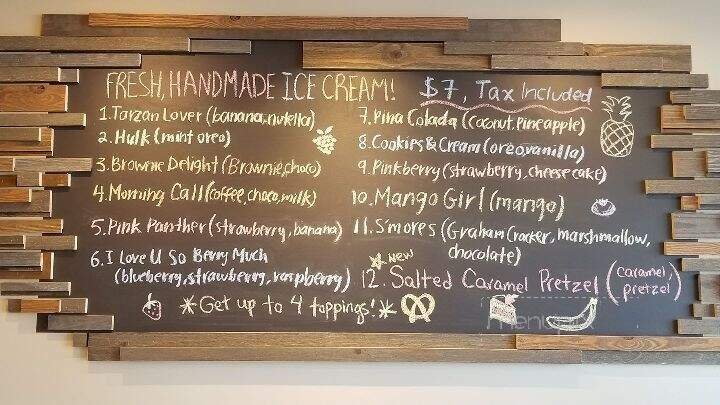 FRESH, HANDMADE ICE CREAM!
$7, Tax Included
1. Tarzan Lover (banana, nutella)
2. Hulk (mint oreo)
3. Brownie Delight (Brownie, choco)
4. Morning Call (coffee, choco, milk)
5. Pink Panther (strawberry, banana)
6. I Love U So Berry Much
(blueberry, strawberry, raspberry)
7. Pina Colada (coconut, pineapple)
8. Cookies & Cream (oreo vanilla)
9. Pinkberry (strawberry, cheesecake)
10. Mango Girl (mango)
11. S'mores (Graham Cracker, marshmallow,
chocolate)
new
12. Salted Caramel Pretzel (caramel,
pretzel)
*Get up to 4 toppings!*
menupix